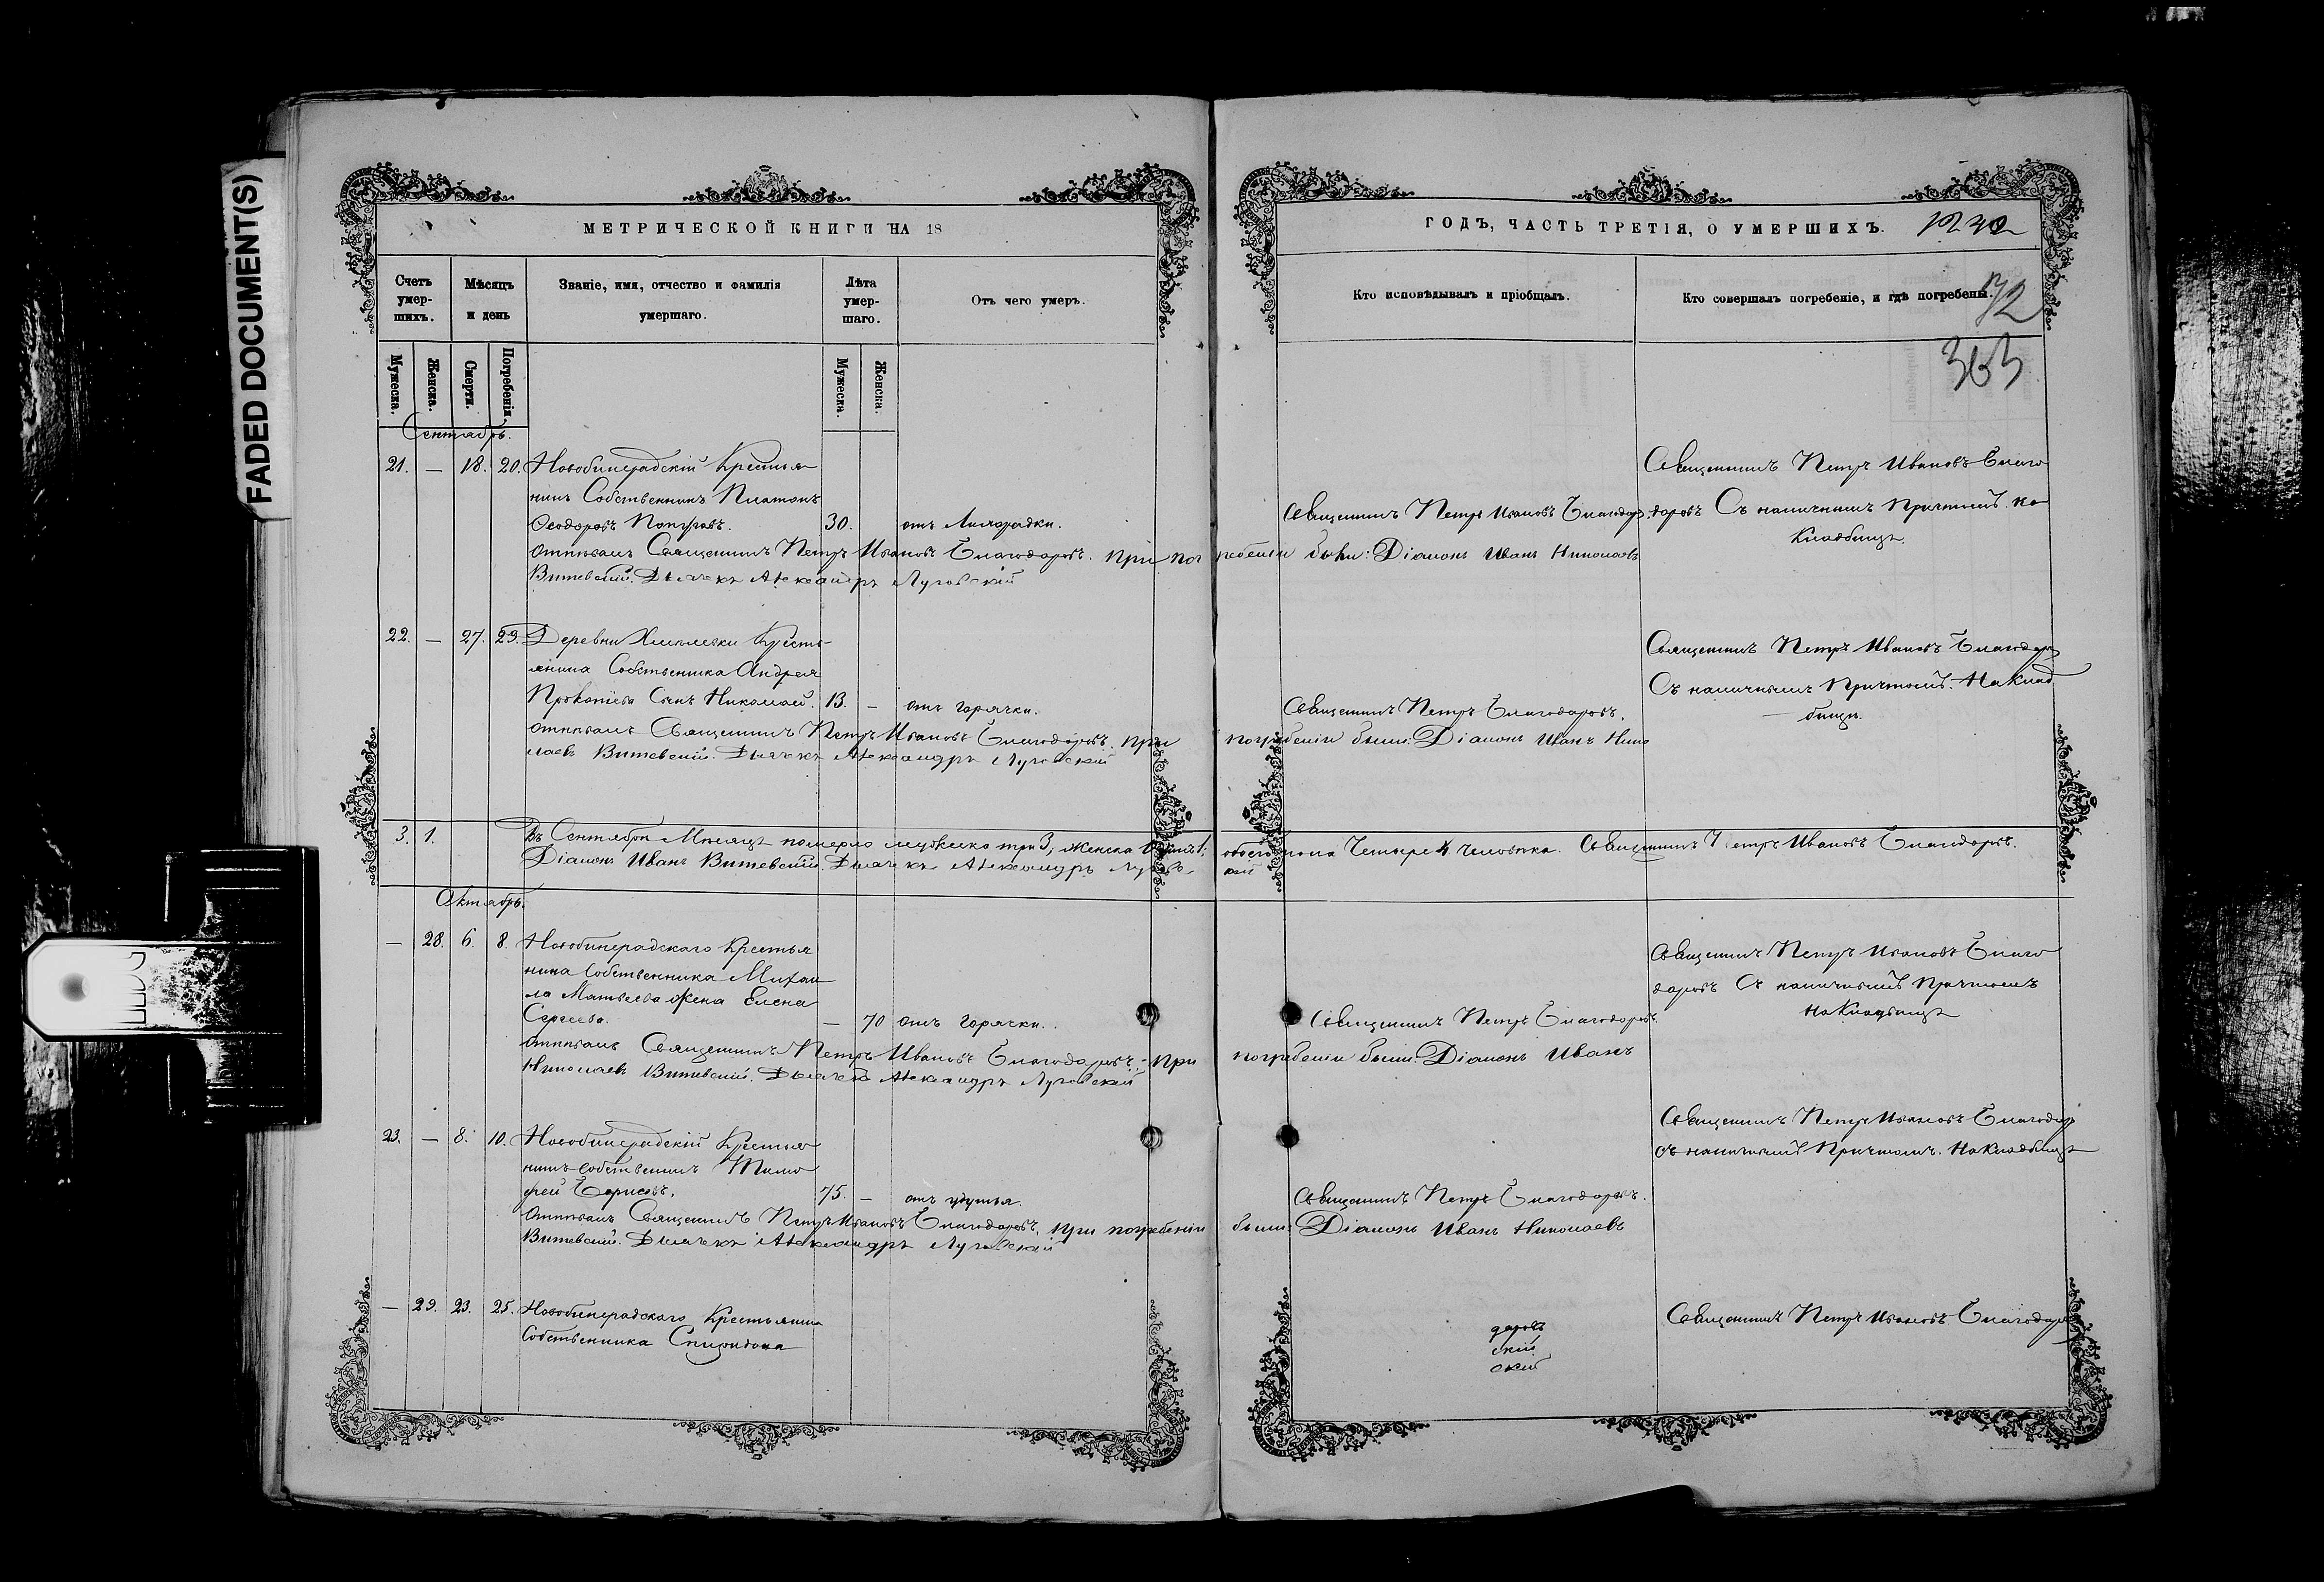 FADED DOCUMENT(S)
МЕТРИЧЕСКОЙ КНИГИ НА 18
Счетъ умер-шихъ.
Мѣсяцъ и день
Званіе, имя, отчество и фамилія умершаго.
Лѣта умер-шаго.
Отъ чего умеръ.
Мужеска.
Женска.
Смерти.
Погребенія.
Мужеска.
Женска.
Сентябрь.
21. — 18. 20. Новобинарадскій Крестья
нинъ Собственникъ Платонъ
Ѳеодоровъ 30. отъ Лихорадки.
Отпѣвалъ Священникъ Петръ Ивановъ Благодаровъ. при пог
Витевскій. Дьячекъ Александръ Луговскій
22. — 27. 29. Деревни Кресть
янина Собственника Андрея
Прокопіева Сынъ Николай. 13. — отъ горячки.
Отпѣвалъ Священникъ Петръ Ивановъ Благодаровъ. при
лаевъ Витевскій. Дьячекъ Александръ Луговскій
3. 1. Въ Сентябрѣ Мѣсяцѣ померло мужеска три 3, женска 1;
Діаконъ Иванъ Витевскій. Дьячекъ Александръ Лугов
Октябрь.
— 28. 6. 8. Новобинарадскаго Крестья
нина Собственника Михаи
ла Матвеева жена Елена
Сергеева. — 70 отъ горячки.
Отпѣвалъ Священникъ Петръ Ивановъ Благодаровъ. При
Николаевъ Витевскій. Дьячекъ Александръ Луговскій
23. — 8. 10. Новобинарадскій Крестья
нинъ Собственникъ Тимо
фей Борисовъ. 75. — отъ удушья.
Отпѣвалъ Священникъ Петръ Ивановъ Благодаровъ. при погребеніи
Витевскій. Дьячекъ Александръ Луговскій
— 29. 23. 25. Новобинарадскаго Крестьянина
Собственника Спиридона
ГОДЪ, ЧАСТЬ ТРЕТІЯ, О УМЕРШИХЪ.
Кто исповѣдывалъ и пріобщалъ.
Кто совершалъ погребеніе, и гдѣ погребены.
363
Священникъ Петръ Ивановъ Благо
Священникъ Петръ Ивановъ Благодар. даровъ Съ наличнымъ Причтомъ. на
Кладбищѣ.
ребеніи были: Діаконъ Иванъ Николаевъ
Священникъ Петръ Ивановъ Благодар
Съ наличнымъ Причтомъ. На Клад
Священникъ Петръ Благодаровъ. бищѣ.
погребеніи были: Діаконъ Иванъ Нико
обоего пола Четыре 4 человѣка. Священникъ Петръ Ивановъ Благодаровъ.
кій
Священникъ Петръ Ивановъ Благо
даровъ Съ наличнымъ Причтомъ
Священникъ Петръ Благодаровъ. на Кладбищѣ
погребеніи были: Діаконъ Иванъ
Священникъ Петръ Ивановъ Благодар
Съ наличнымъ Причтомъ. На Кладбищѣ
Священникъ Петръ Благодаровъ.
были: Діаконъ Иванъ Николаевъ
Священникъ Петръ Ивановъ Благодар
даровъ
скій
скій